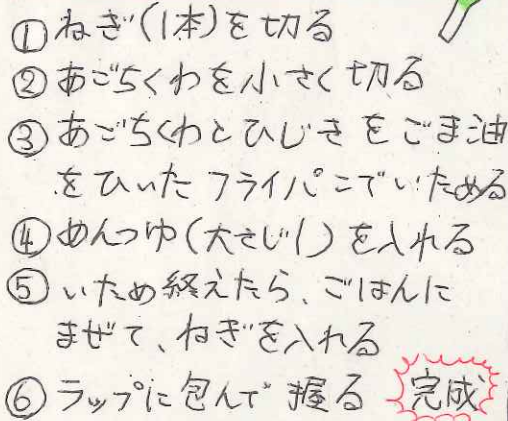 ①ねぎ(1本)を切る
②あごちくわを小さく切る
③あごちくわとひじきをごま油
をひいたフライパンでいためる
④めんつゆ(大さじ1)を入れる
⑤いため終えたら、ごはんに
まぜて、ねぎを入れる
⑥ラップに包んで握る 完成